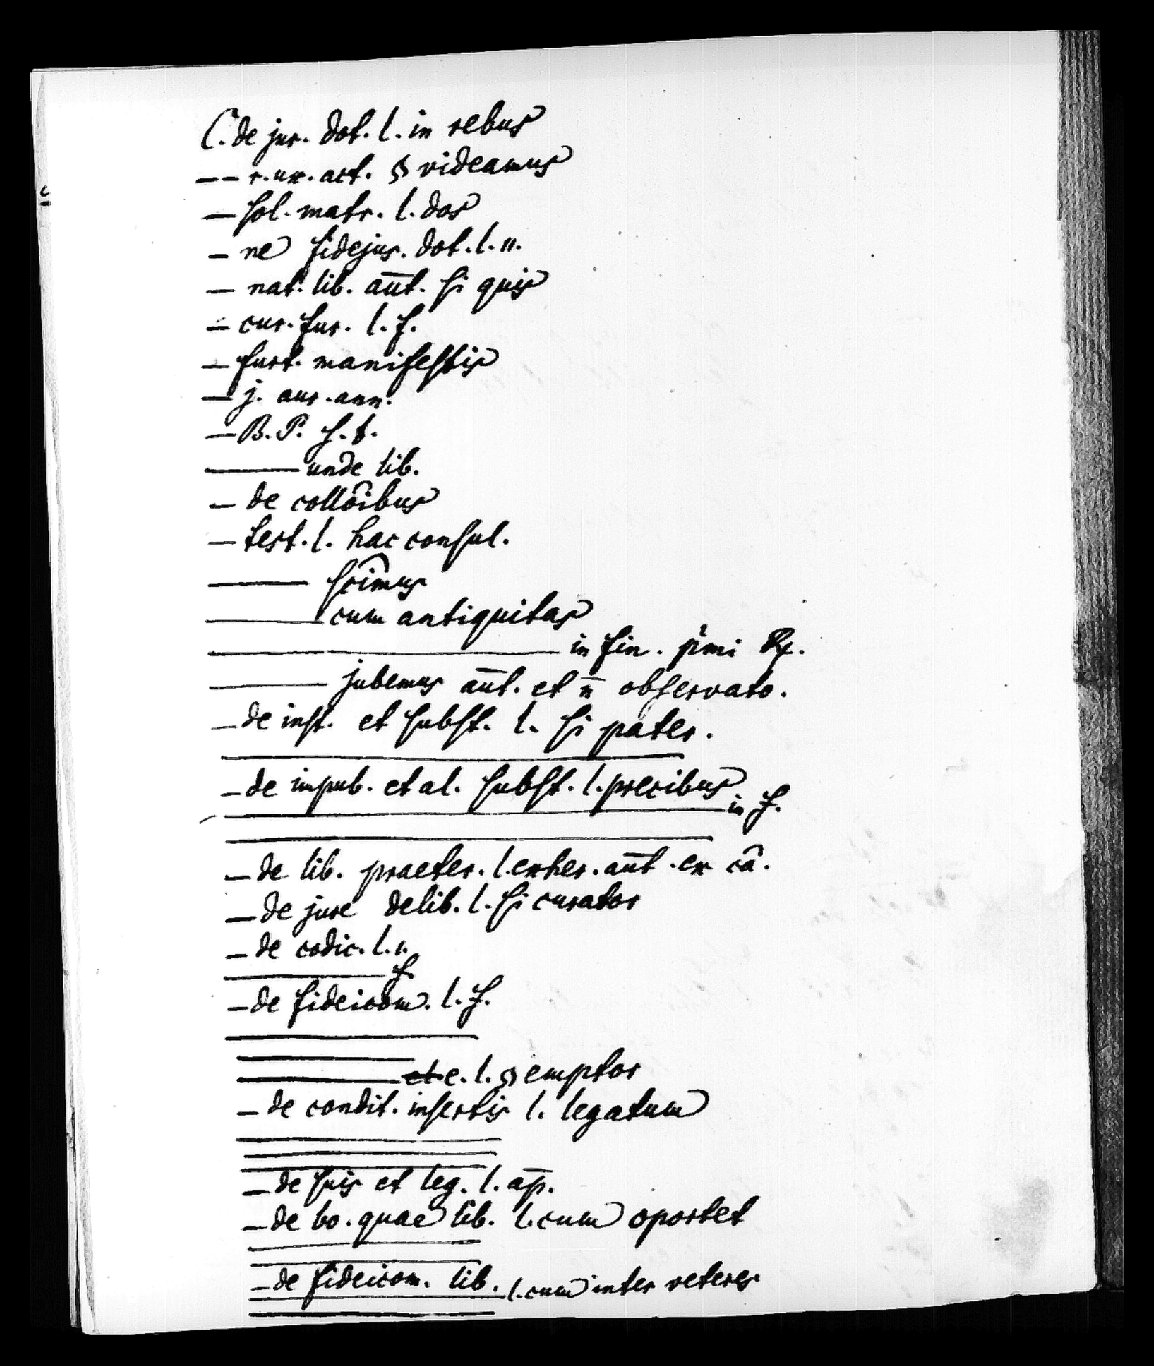 C. de jur. dot. l. in rebus
—— r. ux. act. § videamus
— sol. matr. l. dos
— ne fidejus. dot. l. 11.
— nat. lib. aūt. si quis
— cur. fur. l. f.
— furt. manifestis
— j. aur. ann.
— B. P. s. t.
——— unde lib.
— de collôibus
— test. l. hac consul.
——— scimus
——— cum antiquitas
——— in fin. pmi
——— jubemus aūt. et n̄ observato.
— de inst. et subst. l. si pater.
— de impub. et al. subst. l. precibus
in f.
— de lib. praeter. l. exher. aūt. ex câ.
— de jure delib. l. si curator
— de codic. l. 1.
——— f.
— de fideicom. l. f.
——— e. l. § emptor
— de condit. insertis l. legatum
— de suis et leg. l. ap̄.
— de bo. quae lib. l. cum oportet
— de fideicom. lib. l. cum inter veteres